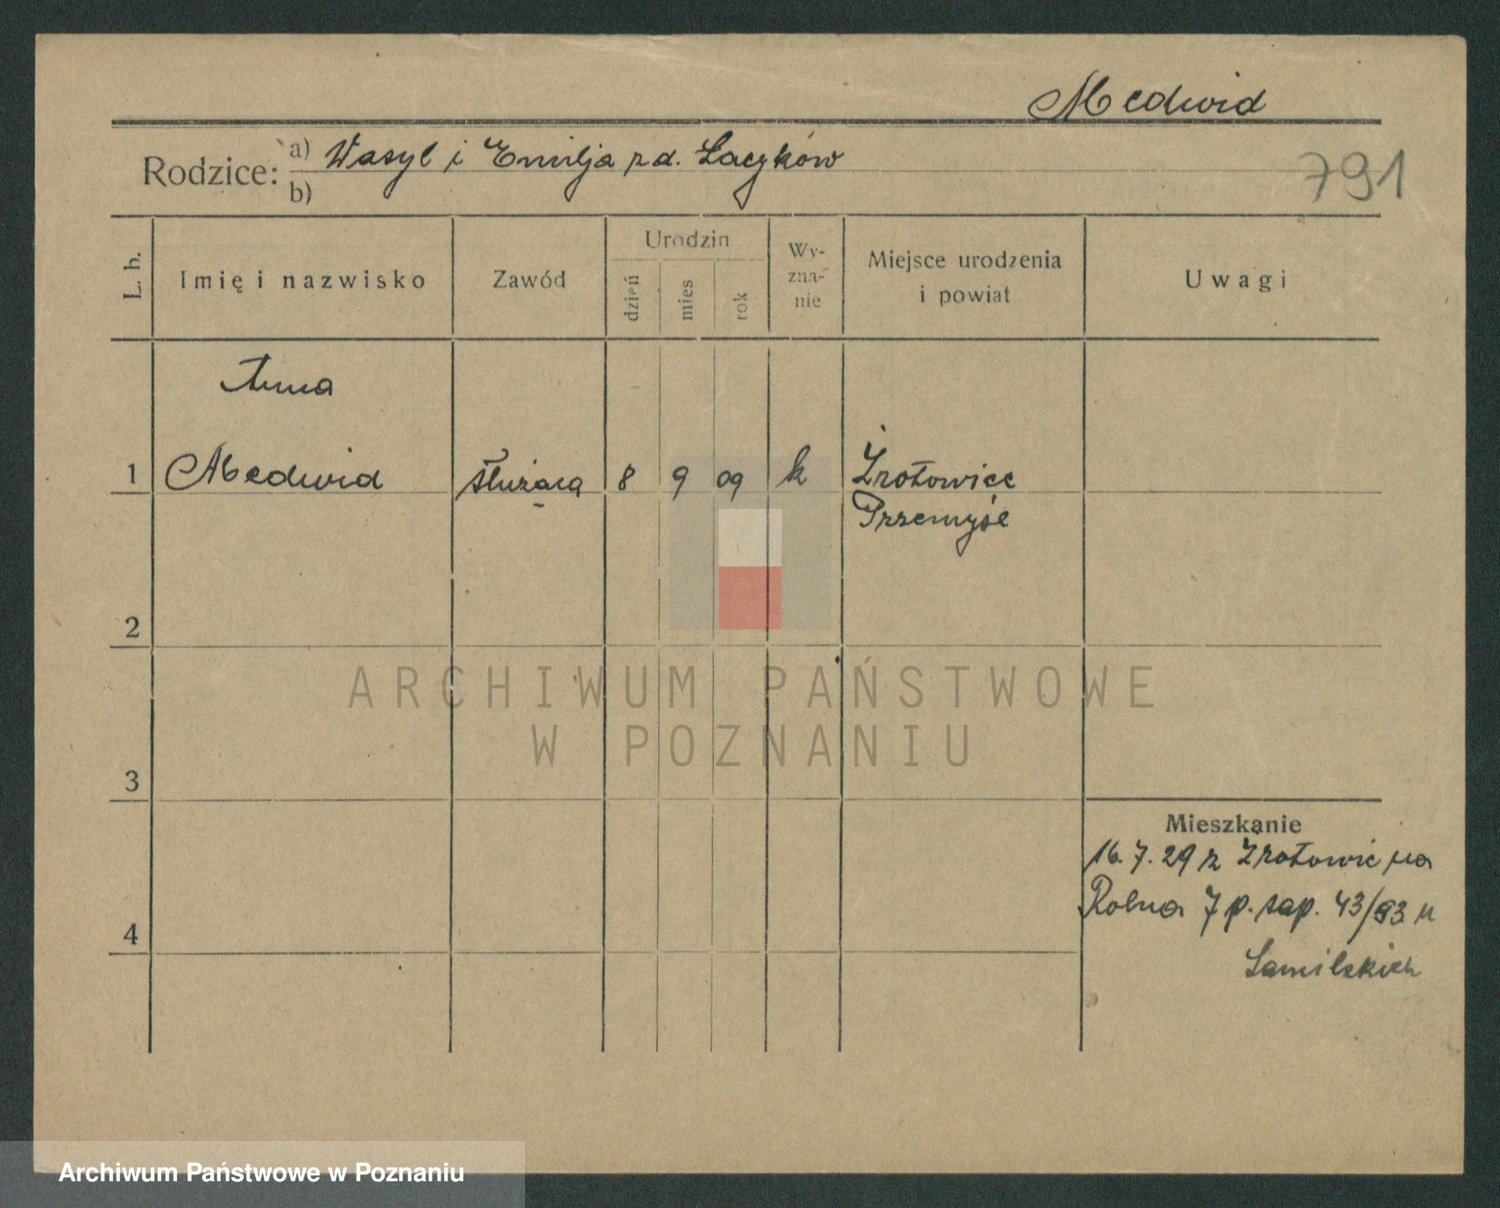 Medwid
Rodzice: a) Wasyl i Emilja z d. Łaczków
b)
791
L. b.
Imię i nazwisko
Zawód
Urodzin
dzień
mies
rok
Wy-
zna-
nie
Miejsce urodzenia
i powiat
Uwagi
Anna
1 Medwid służąca 8 9 09 k Żrotowice
Przemyśl
2
3
4
Mieszkanie
16.7.29 z Żrotowic na
Rolna 7 p. zap. 43/93 u
ARCHIWUM PAŃSTWOWE
W POZNANIU
Archiwum Państwowe w Poznaniu